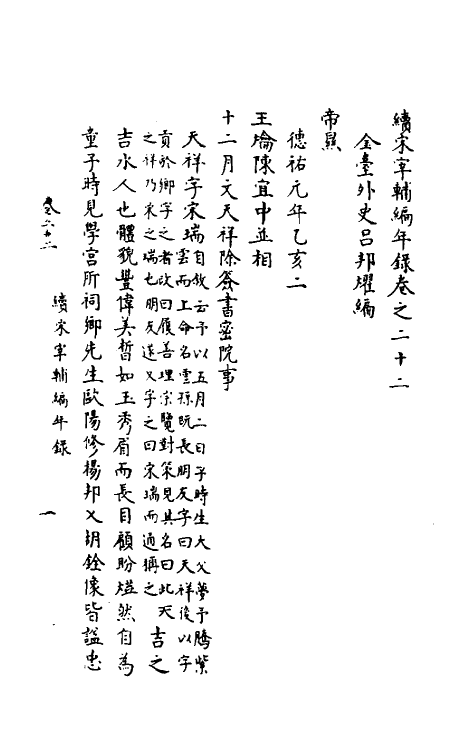 續宋宰輔編年錄卷之二十二
金臺外史呂邦耀編
帝㬎
德祐元年乙亥二
王爚陳宜中並相
十二月文天祥除簽書密院事
天祥字宋瑞自敘云予以五月二日子時生大父夢予騰紫
雲而上命名雲孫既長朋友字曰天祥後以字
貢於鄉字之者改曰履善理宗覽對策見其名曰此天
之祥乃宋之瑞也朋友遂又字之曰宋瑞而通稱之 吉之
吉水人也體貌豐偉美晳如玉秀眉而長目顧盼煜然自為
童子時見學宮所祠鄉先生歐陽修楊邦乂胡銓像皆謚忠
卷二十二 續宋宰輔編年錄 一